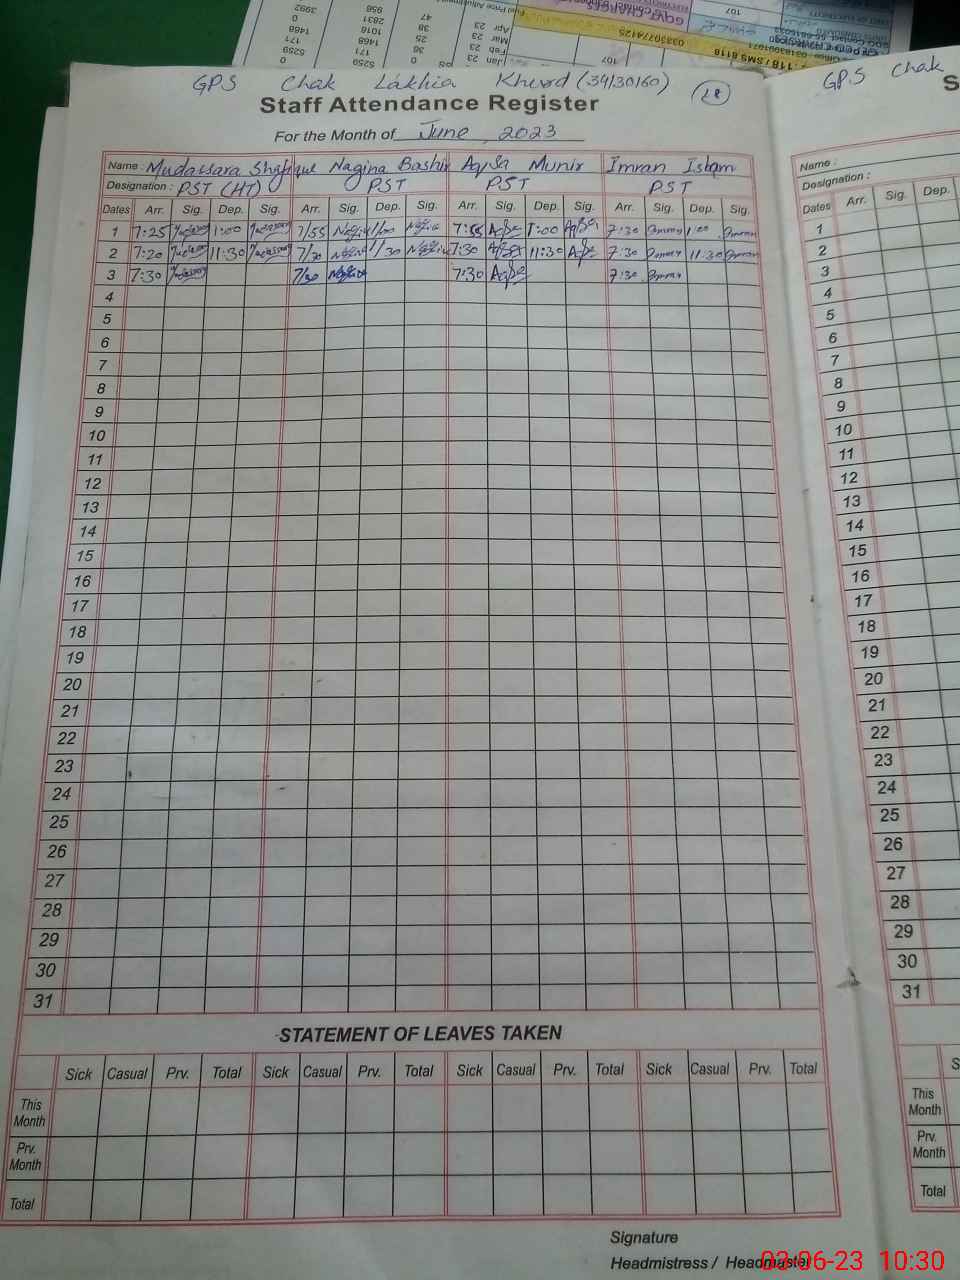 GPS Chak Lakhia Khurd (34130160) 28
Staff Attendance Register
For the Month of June 2023
Name : Mudassara Shafique Nagina Bashir Aqsa Munir Imran Islam
Designation : PST (HT) PST PST PST
Dates Arr. Sig. Dep. Sig. Arr. Sig. Dep. Sig. Arr. Sig. Dep. Sig. Arr. Sig. Dep. Sig.
1 7:25 1:00 7/55 1/00 7:55 Aqsa 1:00 Aqsa 7:30 Imran 1:00 Imran
2 7:20 11:30 7/30 11/30 7:30 Aqsa 11:30 Aqsa 7:30 Imran 11:30 Imran
3 7:30 7/30 7:30 Aqsa 7:30 Imran
4
5
6
7
8
9
10
11
12
13
14
15
16
17
18
19
20
21
22
23
24
25
26
27
28
29
30
31
STATEMENT OF LEAVES TAKEN
Sick Casual Prv. Total Sick Casual Prv. Total Sick Casual Prv. Total Sick Casual Prv. Total
This Month
Prv. Month
Total
Signature
Headmistress / Headmaster
03-06-23 10:30
GPS Chak
S
Name :
Designation :
Dates Arr. Sig. Dep.
1
2
3
4
5
6
7
8
9
10
11
12
13
14
15
16
17
18
19
20
21
22
23
24
25
26
27
28
29
30
31
S
This Month
Prv. Month
Total